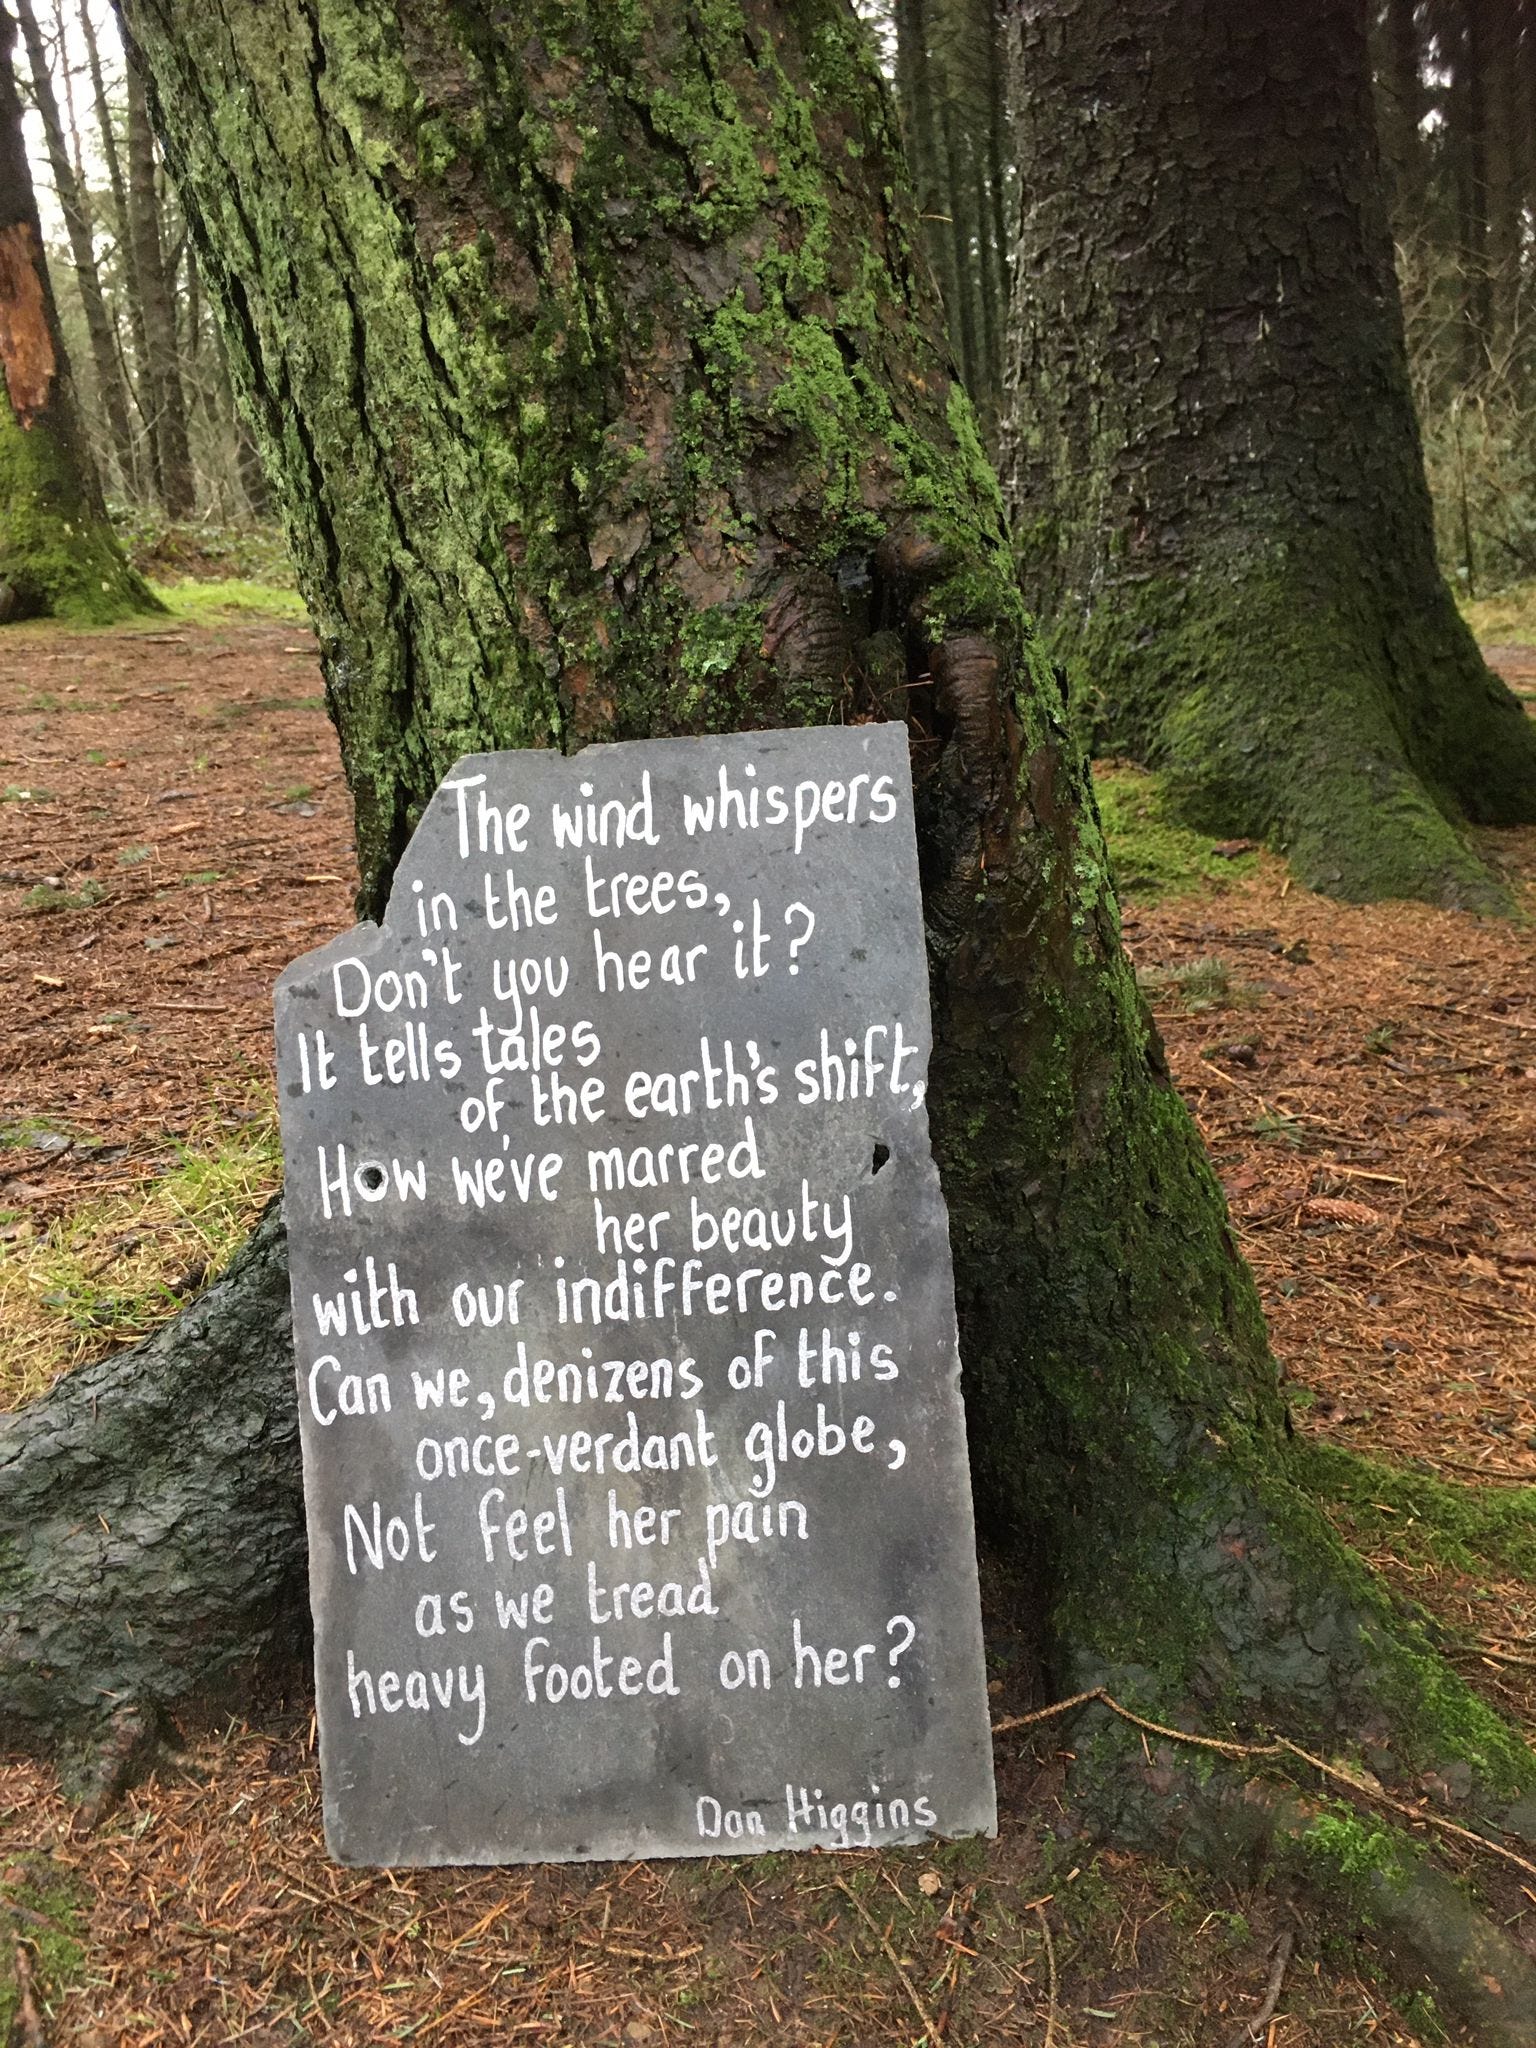 The wind whispers
in the trees,
Don't you hear it?
It tells tales
of the earth's shift,
How we've marred
her beauty
with our indifference.
Can we, denizens of this
once-verdant globe,
Not feel her pain
as we tread
heavy footed on her?
Don Higgins